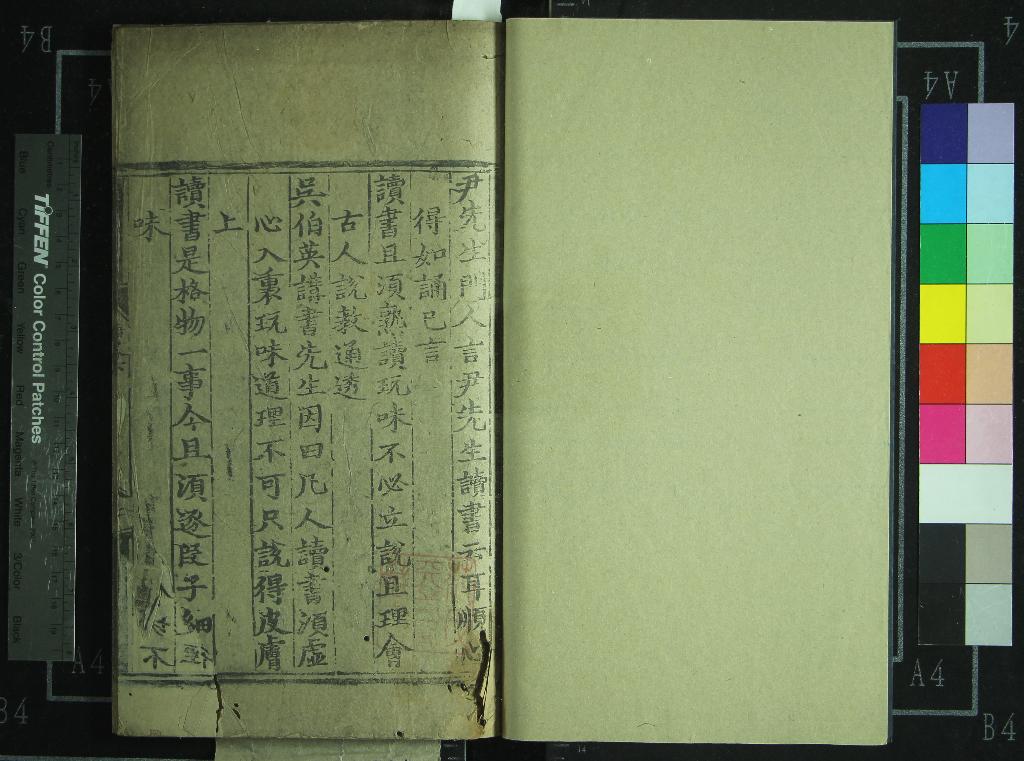 尹先生門人言尹先生讀書云耳順心
得如誦己言
讀書且須熟讀玩味不必立說且理會
古人說教通透
吳伯英講書先生因曰凡人讀書須虛
心入裏玩味道理不可只說得皮膚
上
讀書是格物一事今且須逐段子細
味
不
TIFFEN Color Control Patches
Blue
Cyan
Green
Yellow
Red
Magenta
White
3/Color
Black
B4
A4
A4
A4
A4
B4
B4